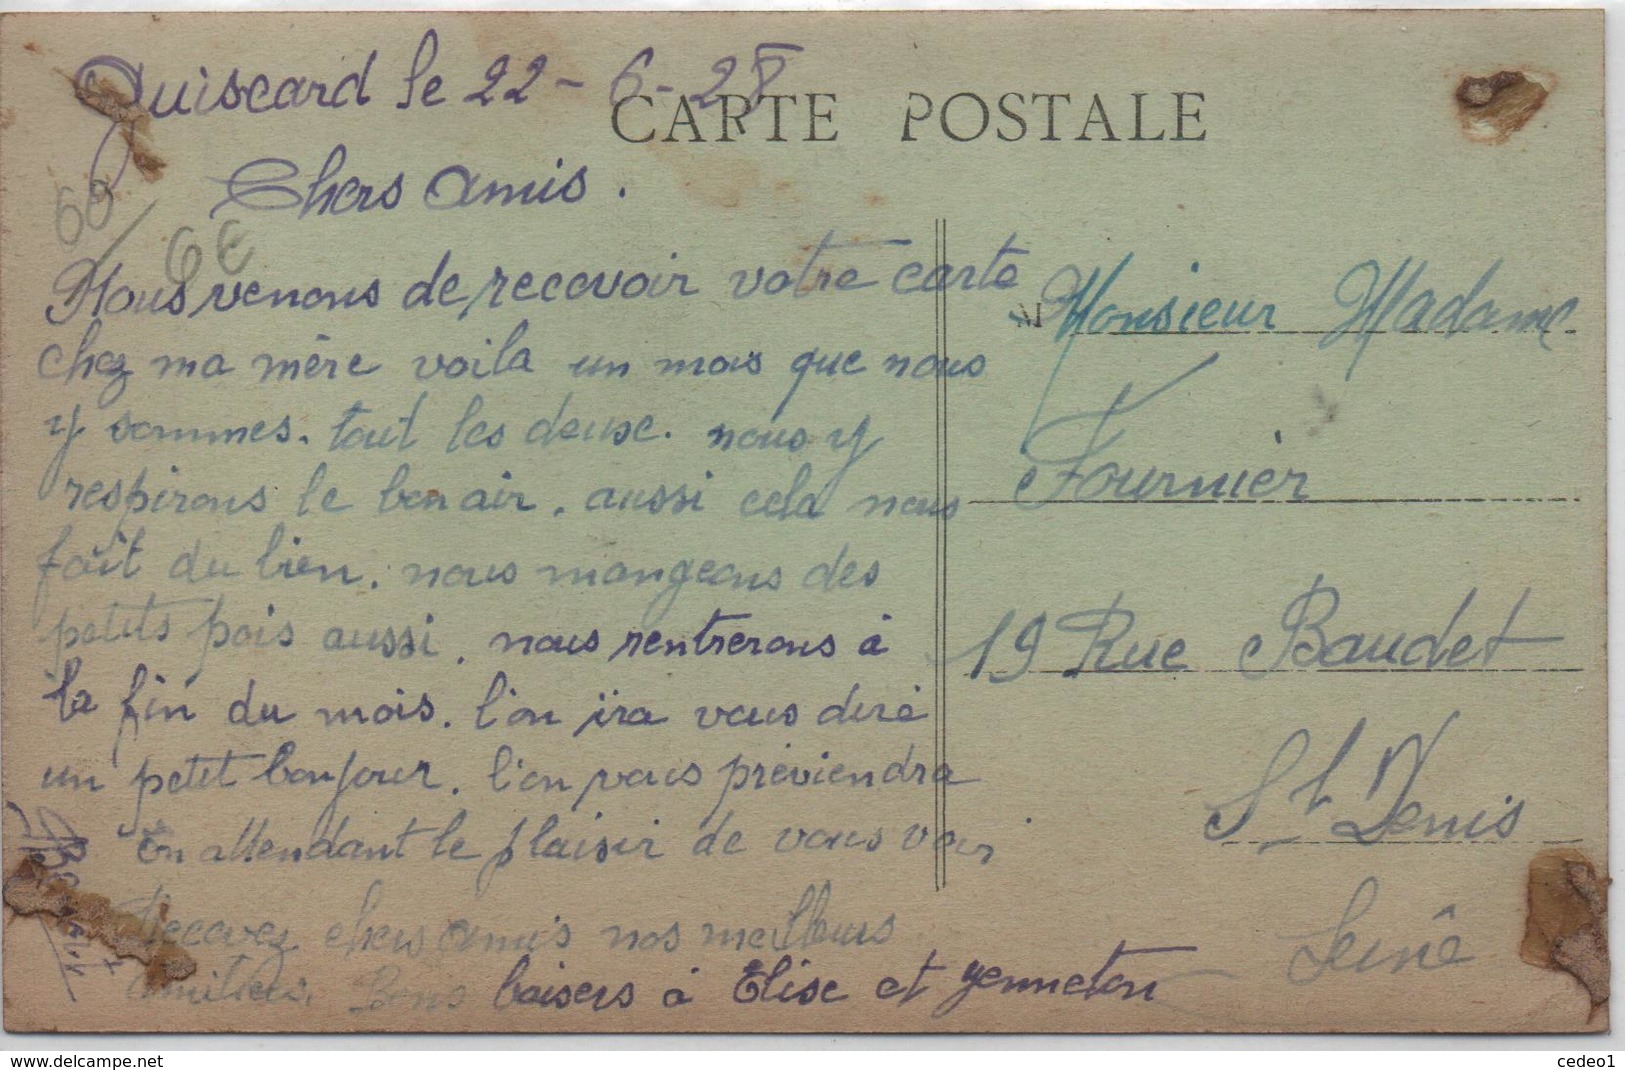 Guiscard le 22-6-28
CARTE POSTALE
Chers amis.
60
6€
Nous venons de recevoir votre carte
chez ma mère voila un mois que nous
y sommes. tout les deuse. nous y
respirons le bon air. aussi cela nous
fait du bien. nous mangeons des
petits pois aussi. nous rentrerons à
la fin du mois. l'on ira vous dire
un petit bonjour. l'on vous préviendra
En attendant le plaisir de vous voir
Recevez chers amis nos meilleurs
amitiers. Bons baisers à Elise et
Monsieur Madame
Fournier
19 Rue Baudet
St Denis
Seine
www.delcampe.net
cedeo1